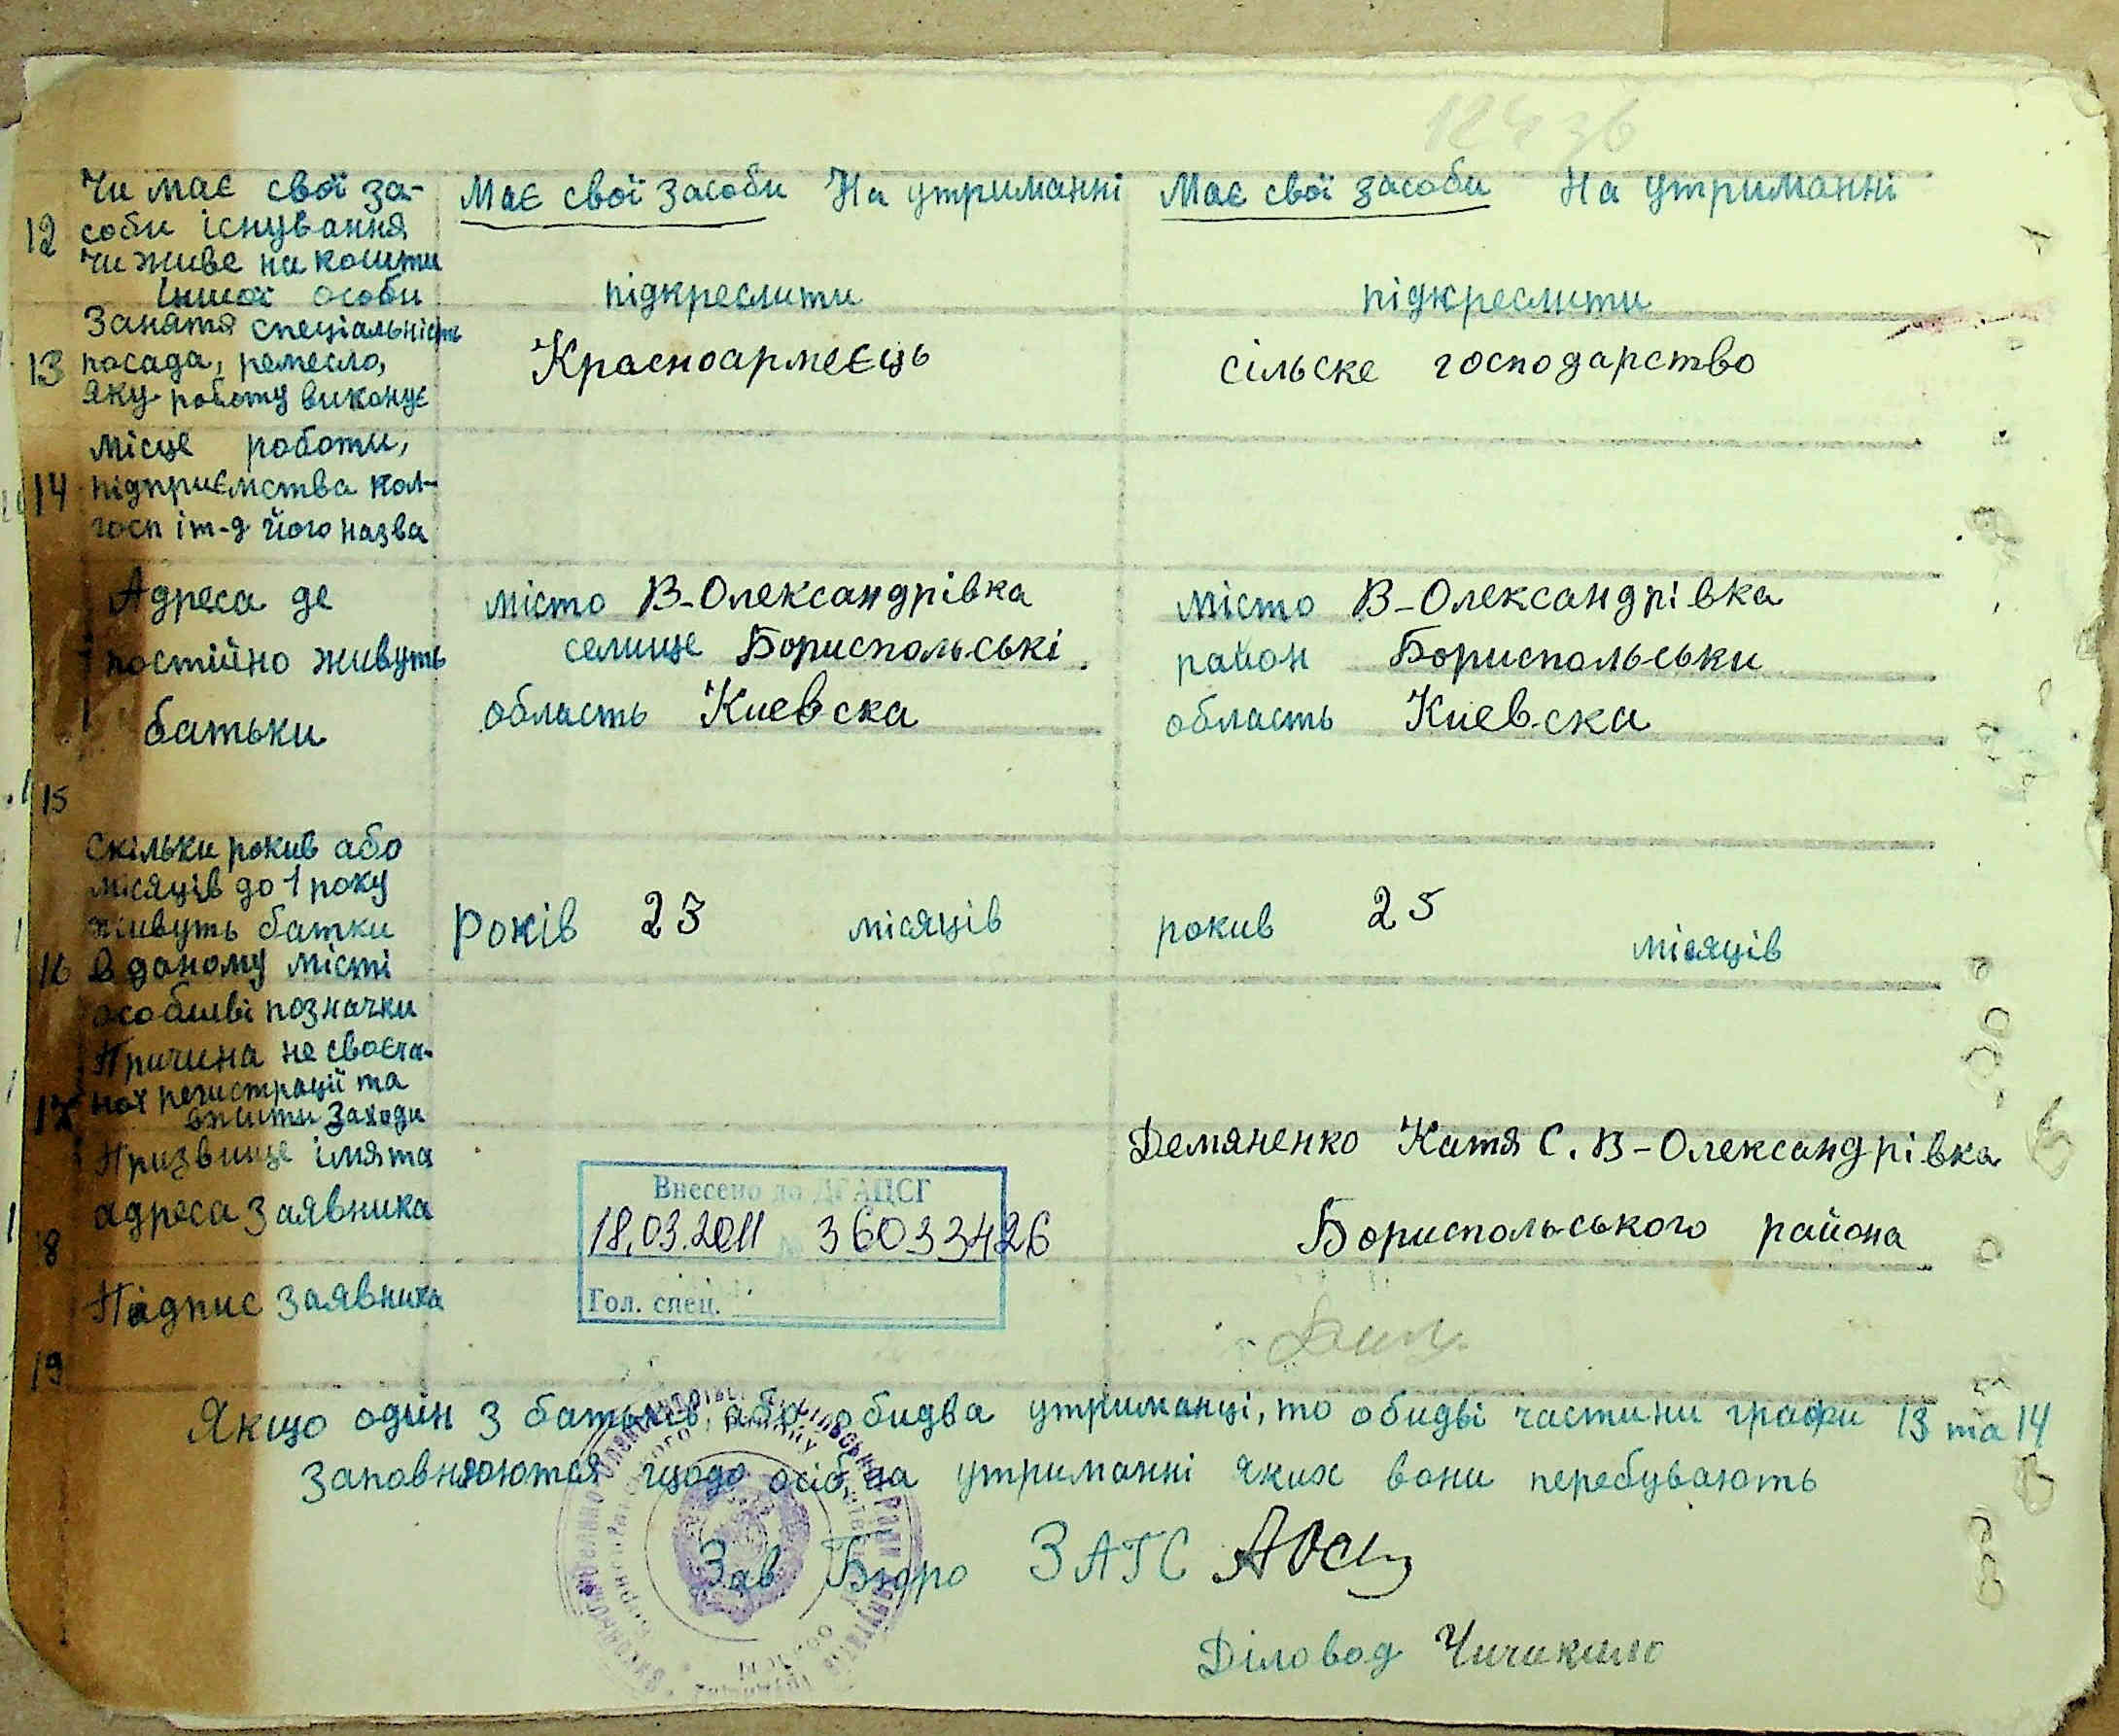 124 зв
12 Чи має свої за-
соби існування
чи живе на кошти
іншої особи
Має свої засоби На утриманні
підкреслити
Має свої засоби На утриманні
підкреслити
13 Заняття спеціальність
посада, ремесло,
яку роботу виконує
Красноармеєць
сільске господарство
14 місце роботи,
підприємства кол-
госп і т-д його назва
15 Адреса де
постійно живуть
батьки
місто В-Олександрівка
селище Бориспольські
область Киевска
місто В-Олександрівка
район Бориспольськи
область Киевска
16 Скільки рокив або
місяців до 1 року
живуть батки
в даному місті
Років 23 місяців
рокив 25 місяців
17 особливі позначки
Причина не своєча-
ної регистрації та
вжити заходи
18 Призвище імя та
адреса заявника
Демяненко Катя С. В-Олександрівка
Бориспольського района
Внесено до ДРАЦСГ
18.03.2011 № 36033426
Гол. спец.
19 Підпис заявника
Якщо один з батьків, або обидва утриманці, то обидві частини графи 13 та 14
заповнюються щодо осіб на утриманні яких вони перебувають
Зав Бюро ЗАГС
Діловод